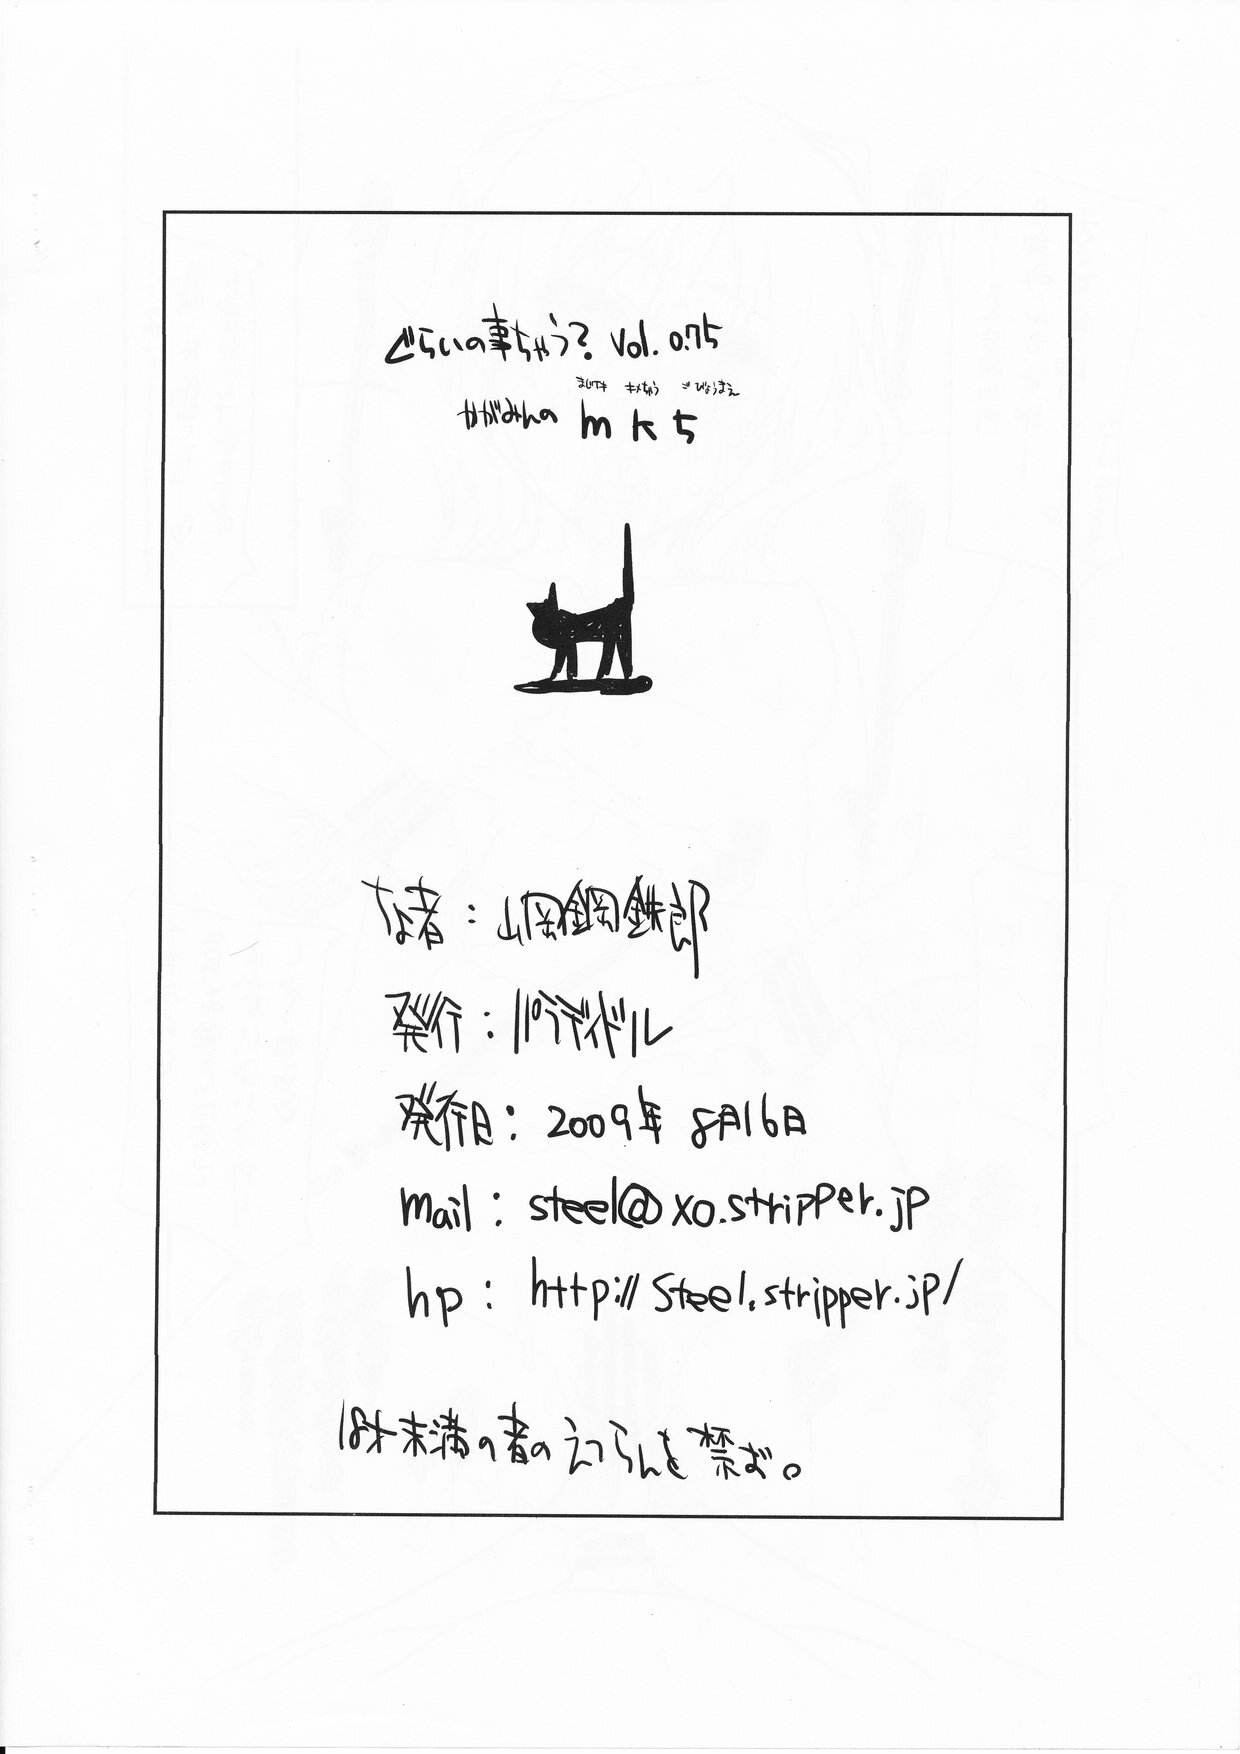 ぐらいの事ちゃう? Vol. 0.75
まじでキ キメちゃう ごびょうまえ
かがみんの mk5
なよ者：山岡鋼鉄郎
発行：パラディドル
発行日：2009年 8月16日
mail：steel@xo.stripper.jp
hp：http://steel.stripper.jp/
18才未満の者のえつらんを禁ず。